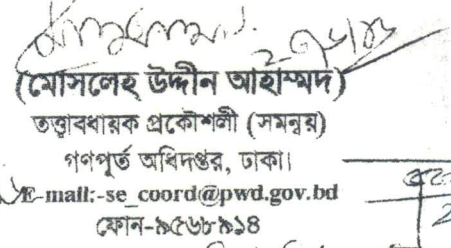 (মোসলেহ উদ্দীন আহাম্মদ)
তত্ত্বাবধায়ক প্রকৌশলী (সমন্বয়)
গণপূর্ত অধিদপ্তর, ঢাকা।
E-mail:-se_coord@pwd.gov.bd
ফোন-৯৫৬৮৯১৪